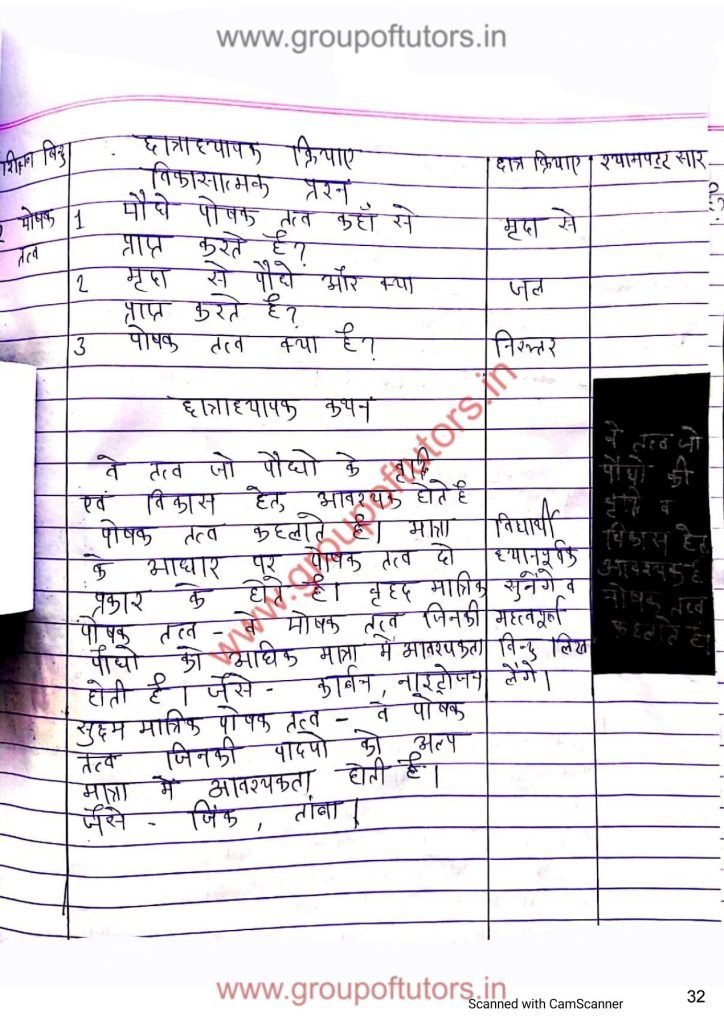 www.groupoftutors.in
शिक्षण बिन्दु
छात्राध्यापक क्रियाए
छात्र क्रियाए
श्यामपट्ट सार
विकासात्मक प्रश्न
पोषक
तत्व
1 पौधे पोषक तत्व कहाँ से
प्राप्त करते है?
मृदा से
2 मृदा से पौधे और क्या
प्राप्त करते है?
जल
3 पोषक तत्व क्या है?
निरुत्तर
छात्राध्यापक कथन
वे तत्व जो पौधो के वृद्धि
एवं विकास हेतु आवश्यक होते है
पोषक तत्व कहलाते है। मात्रा
के आधार पर पोषक तत्व दो
प्रकार के होते है। वृहद मात्रिक
पोषक तत्व - वे पोषक तत्व जिनकी
पौधो को अधिक मात्रा में आवश्यकता
होती है। जैसे - कार्बन, नाइट्रोजन
सुक्ष्म मात्रिक पोषक तत्व - वे पोषक
तत्व जिनकी पादपो को अल्प
मात्रा में आवश्यकता होती है।
जैसे - जिंक, तांबा।
विद्यार्थी
ध्यानपूर्वक
सुनेंगे व
महत्वपूर्ण
बिन्दु लिख
लेंगे।
वे तत्व जो
पौधो की
वृद्धि व
विकास हेतु
आवश्यक है
पोषक तत्व
कहलाते है।
www.groupoftutors.in
www.groupoftutors.in
Scanned with CamScanner
32